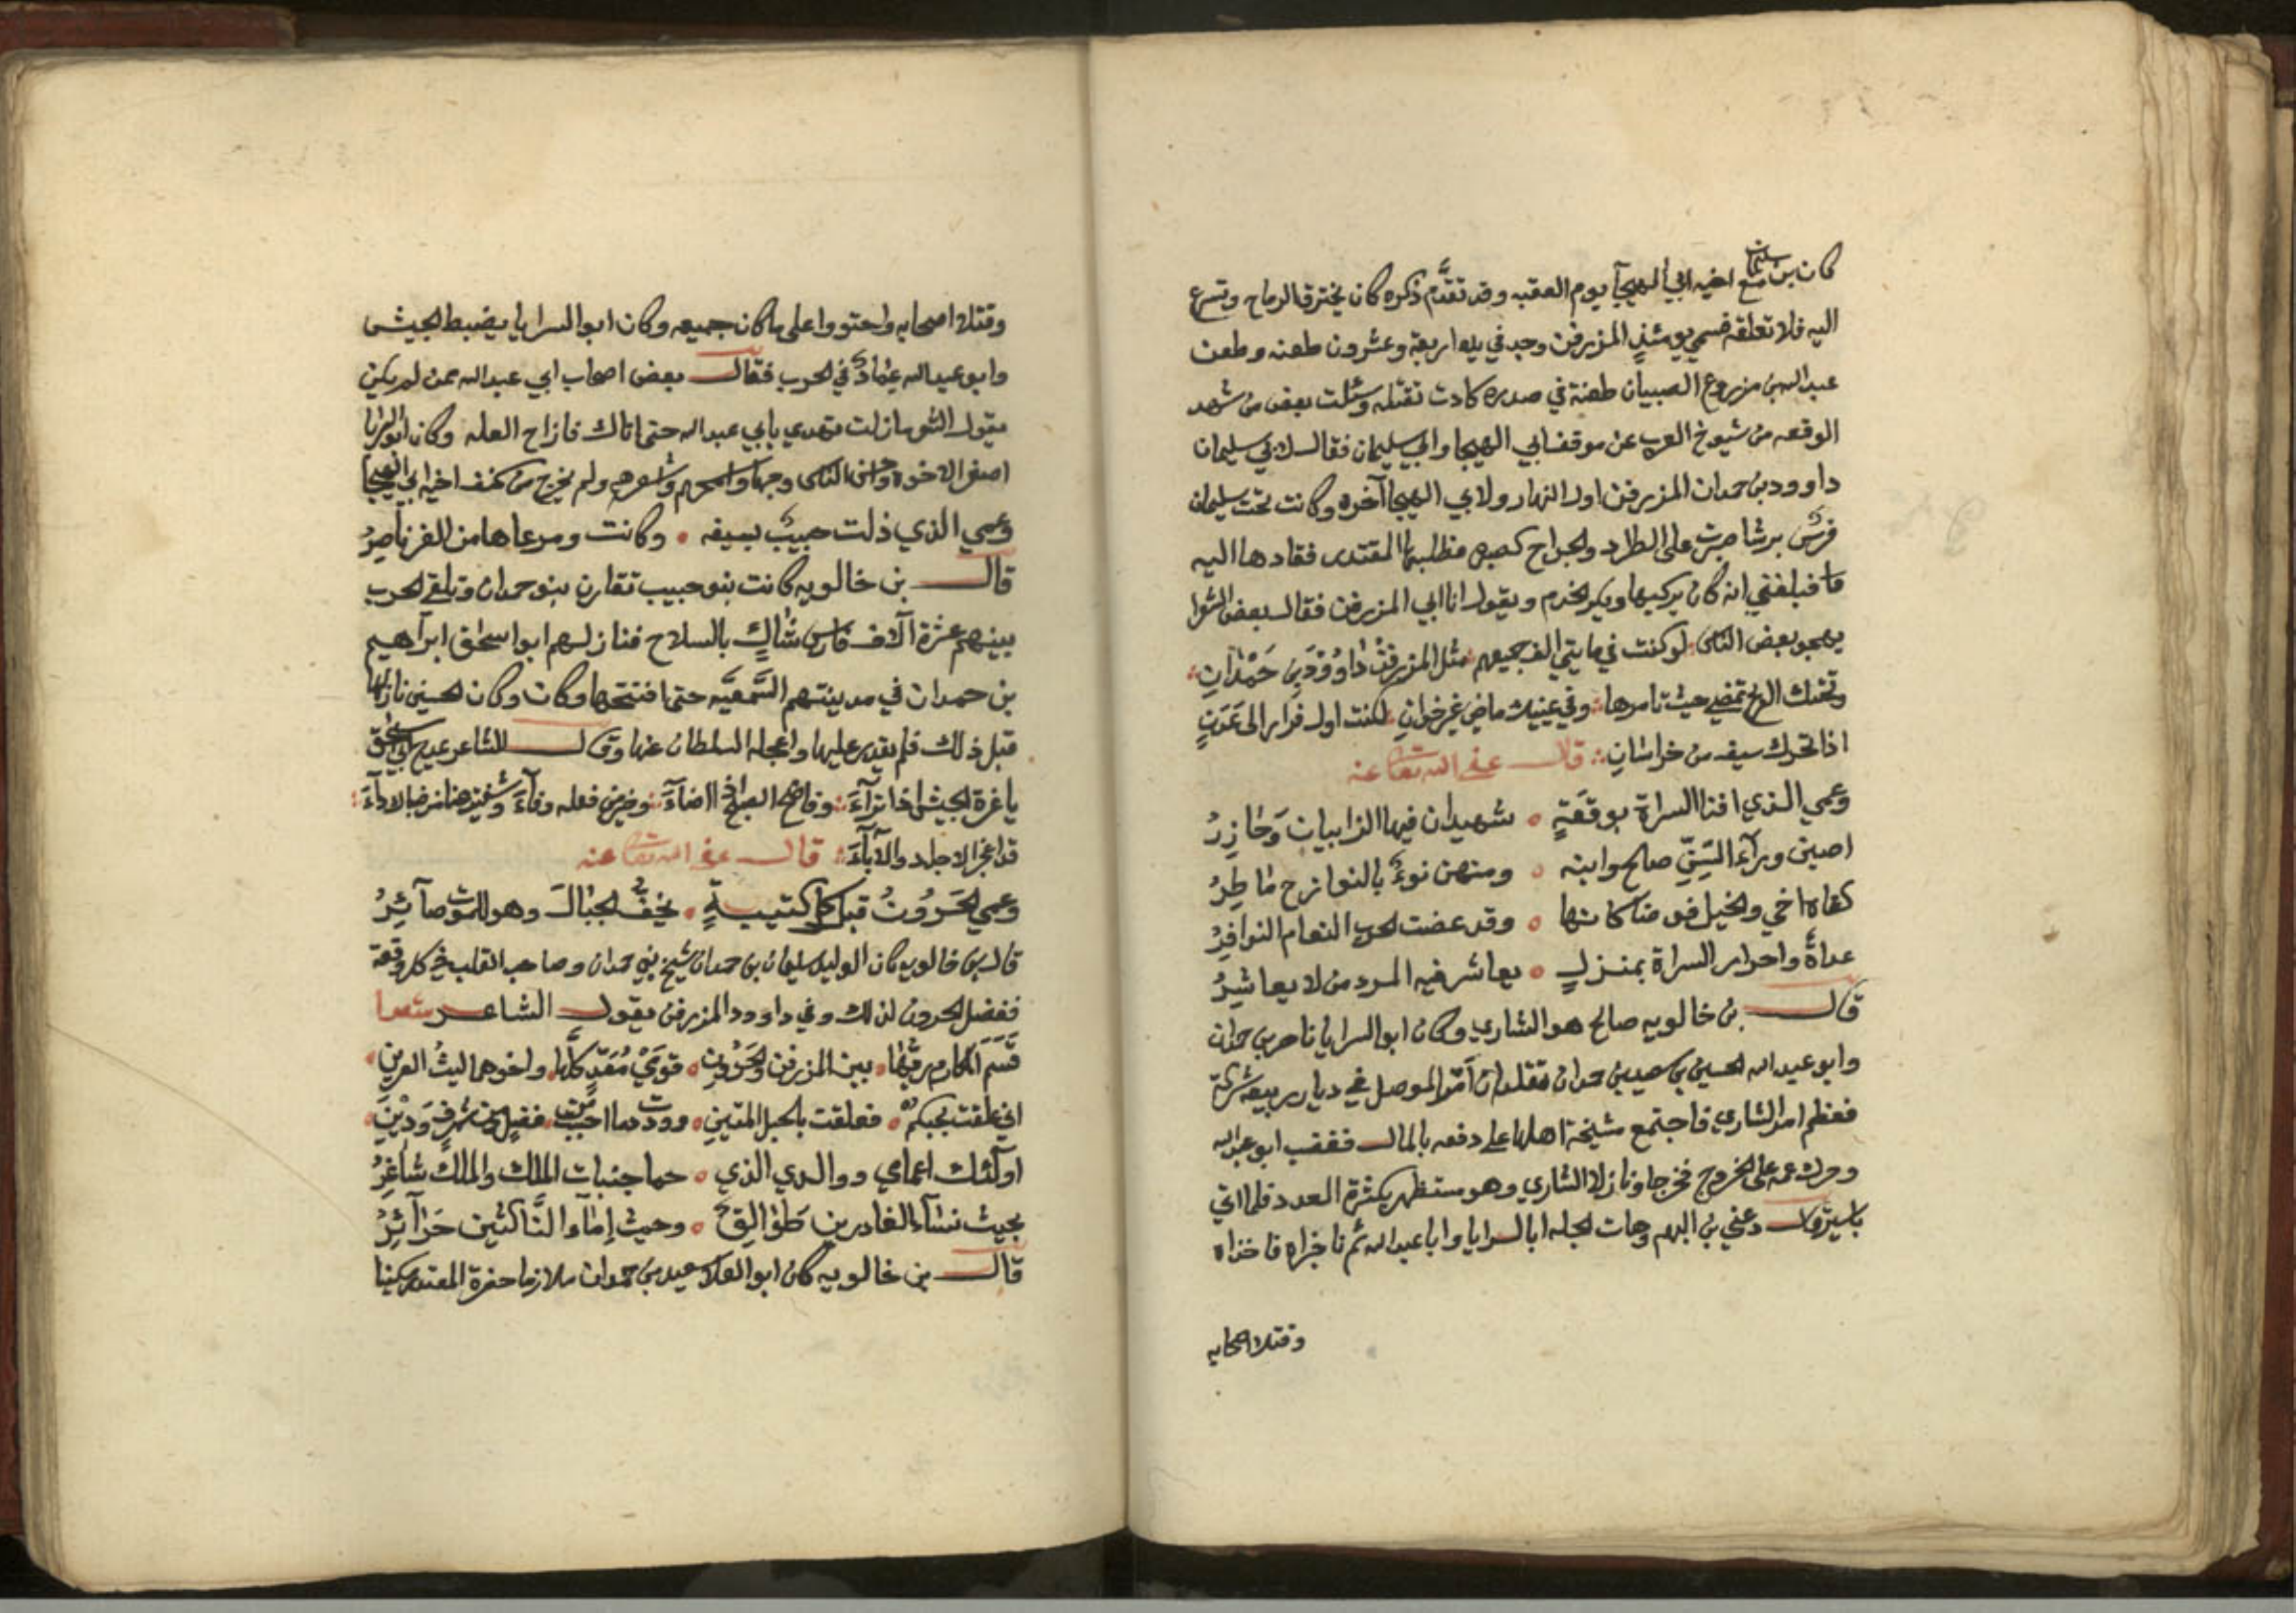 كان بن سليمان مع اخيه ابي الهيجآ يوم العقبه وقد تقدّم ذكره كان يخترق الرماح وتسرع
اليه فلا تعلقه فسمي يومئذٍ المزرفن وجد في يده اربعة وعشرون طعنه وطعن
عبد الله بن مزروع الصبيان طعنة في صدره كادت تقتله وسئلت بعض من شهد
الوقعه من شيوخ العرب عن موقف ابي الهيجا وابي سليمان فقال لابي سليمان
داوود بن حمدان المزرفن اول النهار ولابي الهيجا آخره وكانت تحت سليمان
فرسٌ برشا صبرت على الطراد والجراح فطلبها المقتدر فقادها اليه
فبلغني انه كان يركبها ويكر الخدم ويقول انا ابي المزرفن فقال بعض الشعرا
يهجو بعض الناس لو كنت في مايتي الف جميعهم مثل المزرفن داوُوْدَ بن حَمْدَانِ
وتحتك الريح تمضي حيث تامرها وفي يمينك ماض غير خوان لكنت اول فرار الى عَدَنٍ
اذا تحرك سيف من خراسان قال عفى الله تعالى عنه
وعمي الذي افنا السراة بوقعَةٍ شهيدان فيها الزابيان وَحَازِرُ
اصبن ورآء السِّنِّ صالح وابنه ومنهن نوءٌ بالنوازح مَا طِرُ
كفاه اخي والخيل فوضا كانها وقد عضت الحرب النعام النوافرُ
عداةً واحرار السراة بمنزلٍ يعاشر فيه المرد من لا يعاشِرُ
قال بن خالويه صالح هو الشاري وكان ابو السرايا نا صر بن حمدان
وابو عبد الله الحسين بن سعيد بن حمدان يتقلدان امر الموصل في ديار ربيعه شركة
فعظم امر الشاري فاجتمع مشيخة اهلها على دفعه بالمال فغضب ابو عبد الله
وحرك عمه على الخروج فخرجا ونازلا الشاري وهو مستظهر بكثرة العدد فلما اتي
باسيرٍ قال دعني بن اليهم وهات لجله ابا السرايا وابا عبد الله ثم ناجزاه فاخذاه
وقتلا اصحابه
وقتلا اصحابه واحتووا على ما كان جميعه وكان ابو السرايا يضبط الجيش
وابو عبد الله في الحرب فقال بعض اصحاب ابي عبد الله ممن لم يكن
يقول الشعر ما زلت تهدي بابي عبد الله حتى اتاك فازاح العله وكان ابو السرايا
اصغر الاخوه واحسن الناس وجها واكرمهم واشعرهم ولم يخرج من كنف اخيه ابي الهيجا
وعمي الذي ذلت حبيبٌ بسيفه وكانت ومرعاها من العز ناصِرُ
قال بن خالويه كانت بنو حبيب تقارن بنو حمدان وتلقي الحرب
بينهم عشرة آلاف فارس شاكٍ بالسلاح فنازلهم ابو اسحق ابراهيم
بن حمدان في مدينتهم السَّمعيَّه حتى افتتحها وكان وكان الحسين نازلها
قبل ذلك فلم يقدر عليها واعجله السلطان عنها وقال الشاعر يمدح ابي اسحق
ياغرة الجيش اذا ترآءَ وفاضح الصبح اذا اضآءَ ومن فعله وفآءَ
قد اعجز الاجداد والآبآءَ قال عفى الله تعالى عنه
وعمي الحَرُوْنُ قبل كل كتيبةٍ يخفُّ الجبالَ وهو للموت صآئِرُ
قال بن خالويه كان الوليد سليمان بن حمدان شيخ بني حمدان وصاحب القلب في كل وقعة
ففضل الحرون لذلك وفي داوود المزرفن يقول الشاعر شعرا
قَسَمَ المكارم بين المزرفن والحَرُوْنِ قومَيْ مُعَدٍّ كلّها واخوهما ليثُ العرين
اني علقت بحبكم فعلقت بالحبل المتين ووددت من احببتم ففيكم شرفٍ وَدْينِ
اولئك اعمامي ووالدي الذي حما جنبات الملك والملك شاغِرُ
بحيث نسآء الغادرين طوالِقٌ وحيث اِمَآءُ النَّاكثين حَرَآئِرُ
قال بن خالويه كان ابو العلا سعيد بن حمدان ملازما حضرة المقتدر مكينا